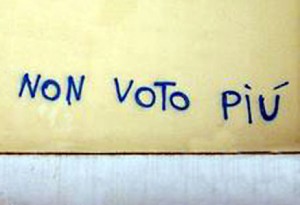 NON VOTO PiÚ